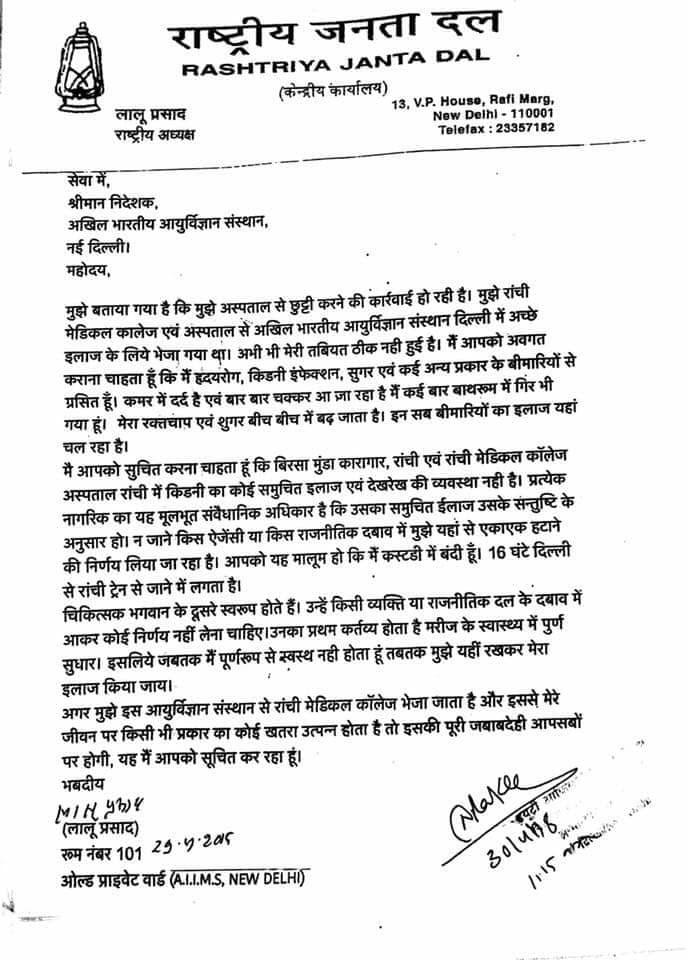 राष्ट्रीय जनता दल
RASHTRIYA JANTA DAL
(केन्द्रीय कार्यालय)
लालू प्रसाद
राष्ट्रीय अध्यक्ष
13, V.P. House, Rafi Marg,
New Delhi - 110001
Telefax : 23357182
सेवा में,
श्रीमान निदेशक,
अखिल भारतीय आयुर्विज्ञान संस्थान,
नई दिल्ली।
महोदय,
मुझे बताया गया है कि मुझे अस्पताल से छुट्टी करने की कार्रवाई हो रही है। मुझे रांची
मेडिकल कालेज एवं अस्पताल से अखिल भारतीय आयुर्विज्ञान संस्थान दिल्ली में अच्छे
इलाज के लिये भेजा गया था। अभी भी मेरी तबियत ठीक नही हुई है। मैं आपको अवगत
कराना चाहता हूँ कि मैं हृदयरोग, किडनी इंफेक्शन, सुगर एवं कई अन्य प्रकार के बीमारियों से
ग्रसित हूँ। कमर में दर्द है एवं बार बार चक्कर आ जा रहा है मैं कई बार बाथरूम में गिर भी
गया हूं। मेरा रक्तचाप एवं शुगर बीच बीच में बढ़ जाता है। इन सब बीमारियों का इलाज यहां
चल रहा है।
मै आपको सुचित करना चाहता हूं कि बिरसा मुंडा कारागार, रांची एवं रांची मेडिकल कॉलेज
अस्पताल रांची में किडनी का कोई समुचित इलाज एवं देखरेख की व्यवस्था नही है। प्रत्येक
नागरिक का यह मूलभूत संवैधानिक अधिकार है कि उसका समुचित ईलाज उसके सन्तुष्टि के
अनुसार हो। न जाने किस ऐजेंसी या किस राजनीतिक दबाव में मुझे यहां से एकाएक हटाने
की निर्णय लिया जा रहा है। आपको यह मालूम हो कि मैं कस्टडी में बंदी हूँ। 16 घंटे दिल्ली
से रांची ट्रेन से जाने में लगता है।
चिकित्सक भगवान के दूसरे स्वरूप होते हैं। उन्हें किसी व्यक्ति या राजनीतिक दल के दबाव में
आकर कोई निर्णय नहीं लेना चाहिए।उनका प्रथम कर्तव्य होता है मरीज के स्वास्थ्य में पुर्ण
सुधार। इसलिये जबतक मैं पूर्णरूप से स्वस्थ नही होता हूं तबतक मुझे यहीं रखकर मेरा
इलाज किया जाय।
अगर मुझे इस आयुर्विज्ञान संस्थान से रांची मेडिकल कॉलेज भेजा जाता है और इससे मेरे
जीवन पर किसी भी प्रकार का कोई खतरा उत्पन्न होता है तो इसकी पूरी जबाबदेही आपसबों
पर होगी, यह मैं आपको सूचित कर रहा हूं।
भबदीय
(लालू प्रसाद)
रूम नंबर 101
ओल्ड प्राइवेट वार्ड (A.I.I.M.S, NEW DELHI)
30/4/18